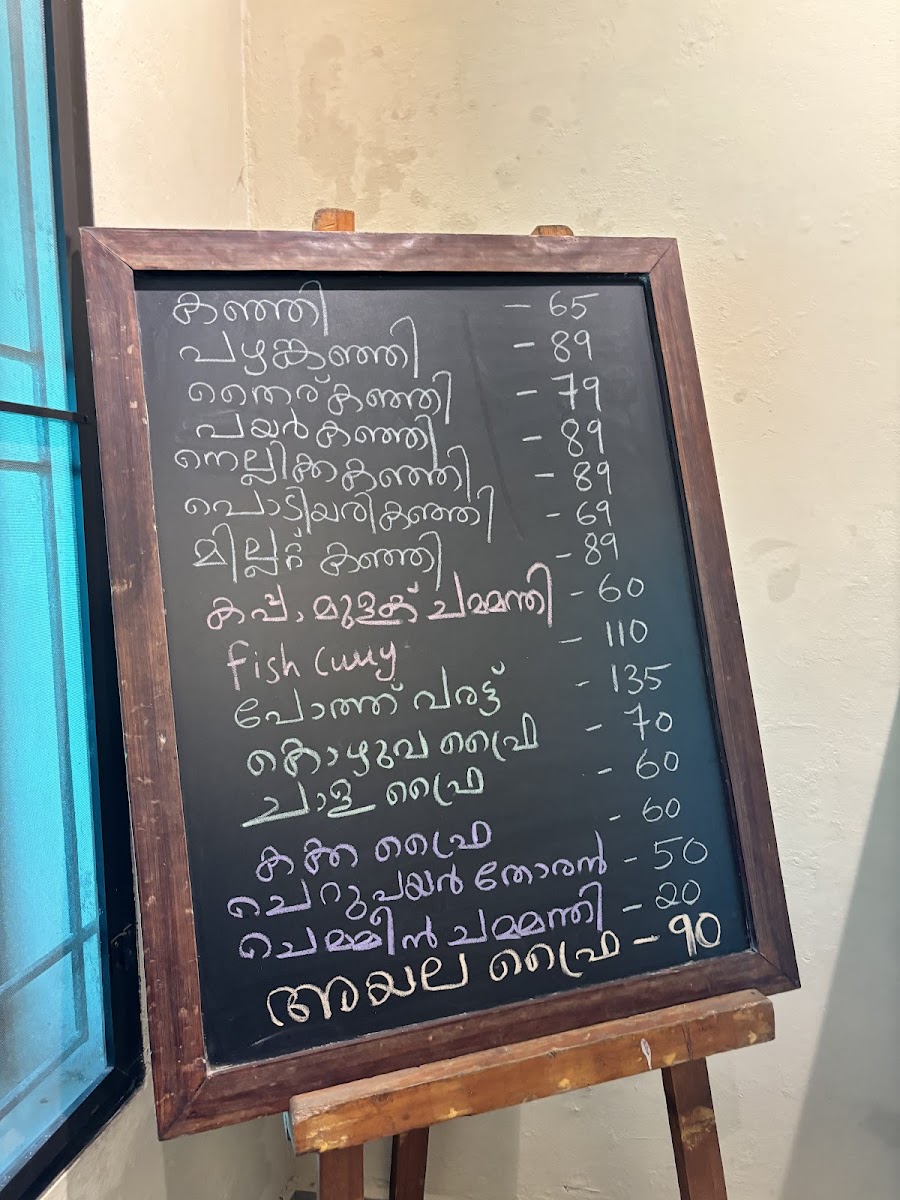 കഞ്ഞി - 65
പഴങ്കഞ്ഞി - 89
തൈര് കഞ്ഞി - 79
പയർ കഞ്ഞി - 89
നെല്ലിക്ക കഞ്ഞി - 89
പൊടിയരി കഞ്ഞി - 69
മില്ലറ്റ് കഞ്ഞി - 89
കപ്പ, മുളക് ചമ്മന്തി - 60
fish Curry - 110
പോത്ത് വരട്ട് - 135
കൊഴുവ ഫ്രൈ - 70
ചാള ഫ്രൈ - 60
കക്ക ഫ്രൈ - 60
ചെറുപയർ തോരൻ - 50
ചെമ്മീൻ ചമ്മന്തി - 20
അയല ഫ്രൈ - 90